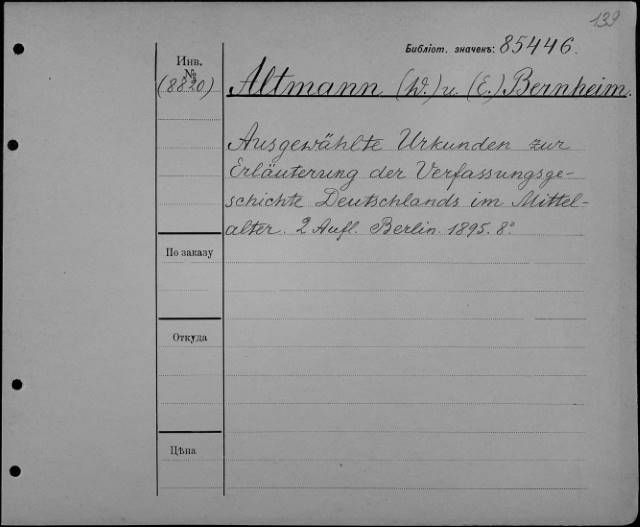 139
Библіот. значекъ: 85446.
Инв.
№
(8820)
Altmann (W.) u. (E.) Bernheim.
Ausgewählte Urkunden zur
Erläuterung der Verfassungsge-
schichte Deutschlands im Mittel-
alter. 2 Aufl. Berlin. 1895. 8°
По заказу
Откуда
Цѣна